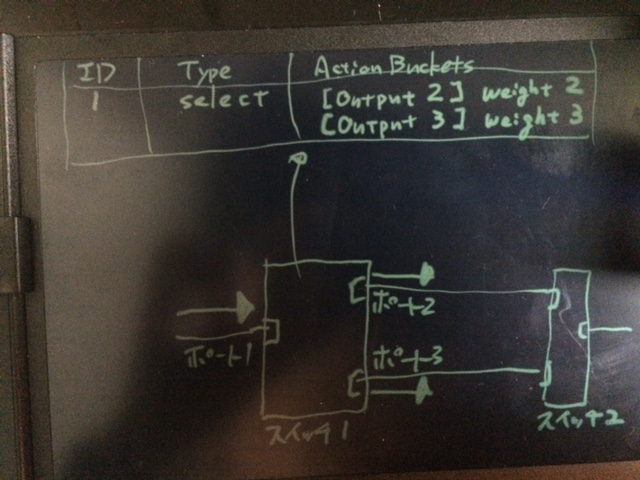 ID Type Action Buckets
1 select [Output 2] weight 2
[Output 3] weight 3
ポート2
ポート1
ポート3
スイッチ1
スイッチ2